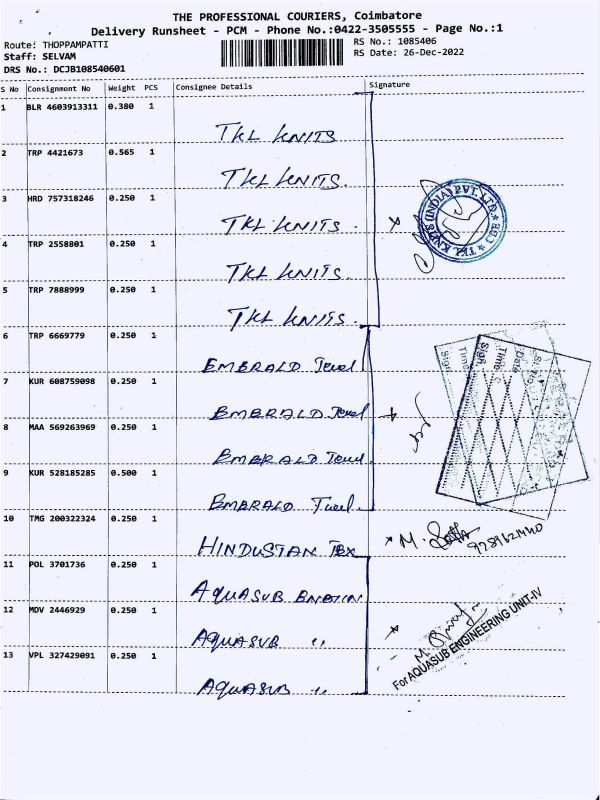 THE PROFESSIONAL COURIERS, Coimbatore
Delivery Runsheet - PCM - Phone No.:0422-3505555 - Page No.:1
Route: THOPPAMPATTI
RS No.: 1085406
Staff: SELVAM
RS Date: 26-Dec-2022
DRS No.: DCJB108540601
S No Consignment No Weight PCS Consignee Details Signature
1 BLR 4603913311 0.380 1
TKL KNITS
2 TRP 4421673 0.565 1
TKL KNITS.
3 HRD 757318246 0.250 1
TKL KNITS.
TKL KNITS (INDIA) PVT. LTD.
4 TRP 2558801 0.250 1
TKL KNITS.
5 TRP 7888999 0.250 1
TKL KNITS.
6 TRP 6669779 0.250 1
EMERALD Jewel
Date
Time
Sign
Time
Sign
7 KUR 608759098 0.250 1
EMERALD Jewel
8 MAA 569263969 0.250 1
EMERALD Jewel
9 KUR 528185285 0.500 1
EMERALD Jewel.
10 TMG 200322324 0.250 1
HINDUSTAN TEX
M.
11 POL 3701736 0.250 1
AQUASUB
12 MDV 2446929 0.250 1
AQUASUB "
M.
For AQUASUB ENGINEERING UNIT-IV
13 VPL 327429091 0.250 1
AQUASUB "